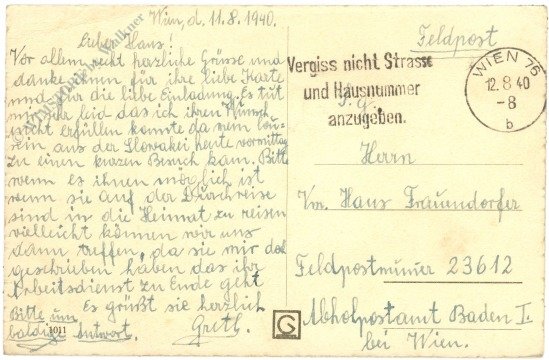 Wien, d. 11.8.1940.
Liebe Hans!
Vor allem recht herzliche Grüsse und
danke ihnen für ihre liebe Karte
und für die liebe Einladung. Es tut
mir sehr leid das ich ihren Wunsch
nicht erfüllen konnte da mein Cou-
sin aus der Slovakei heute vormittag
zu einen kurzen Besuch kam. Bitte
wenn es ihnen möglich ist
wenn sie auf der Durchreise
sind in die Heimat zu reisen
vielleicht können wir uns
dann treffen, da sie mir doch
geschrieben haben das ihr
Arbeitsdienst zu Ende geht
Es grüßt sie herzlich
Gretl.
Bitte um
baldige Antwort.
1011
Feldpost
Vergiss nicht Strasse
und Hausnummer
anzugeben.
WIEN 76
12.8 40
-8
b
Herrn
Vm. Hans Frauendorfer
Feldpostnummer 23612
Abholpostamt Baden I.
bei Wien.
G